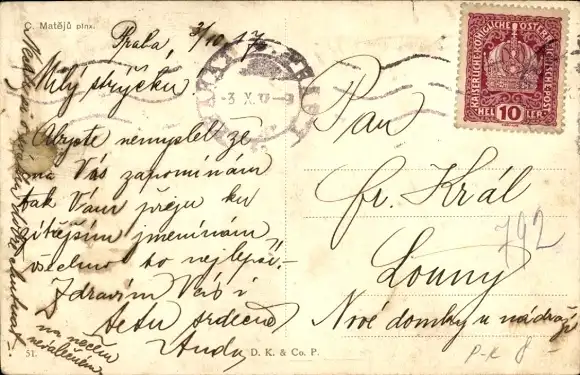 C. Matějů pinx.
Praha, 3/10 17.
Milý strýčku.
Abyste nemyslel že
na Vás zapomínám
tak Vám přeju ku
zítřejším jmeninám
všechno to nejlepší.-
Zdravím Vás i
tetu srdečně
Anda
51.
D. K. & Co. P.
-3 X 17
KAISERLICHE KÖNIGLICHE ÖSTERR. POST
HELLER 10
Pan
fr. Král
Louny
Nové domky u nádraží
792